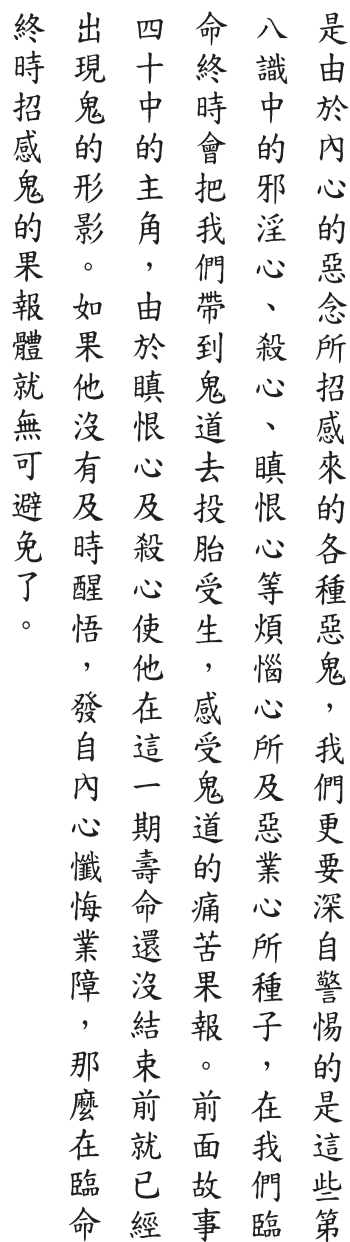 是由於內心的惡念所招感來的各種惡鬼，我們更要深自警惕的是這些第
八識中的邪淫心、殺心、瞋恨心等煩惱心所及惡業心所種子，在我們臨
命終時會把我們帶到鬼道去投胎受生，感受鬼道的痛苦果報。前面故事
四十中的主角，由於瞋恨心及殺心使他在這一期壽命還沒結束前就已經
出現鬼的形影。如果他沒有及時醒悟，發自內心懺悔業障，那麼在臨命
終時招感鬼的果報體就無可避免了。